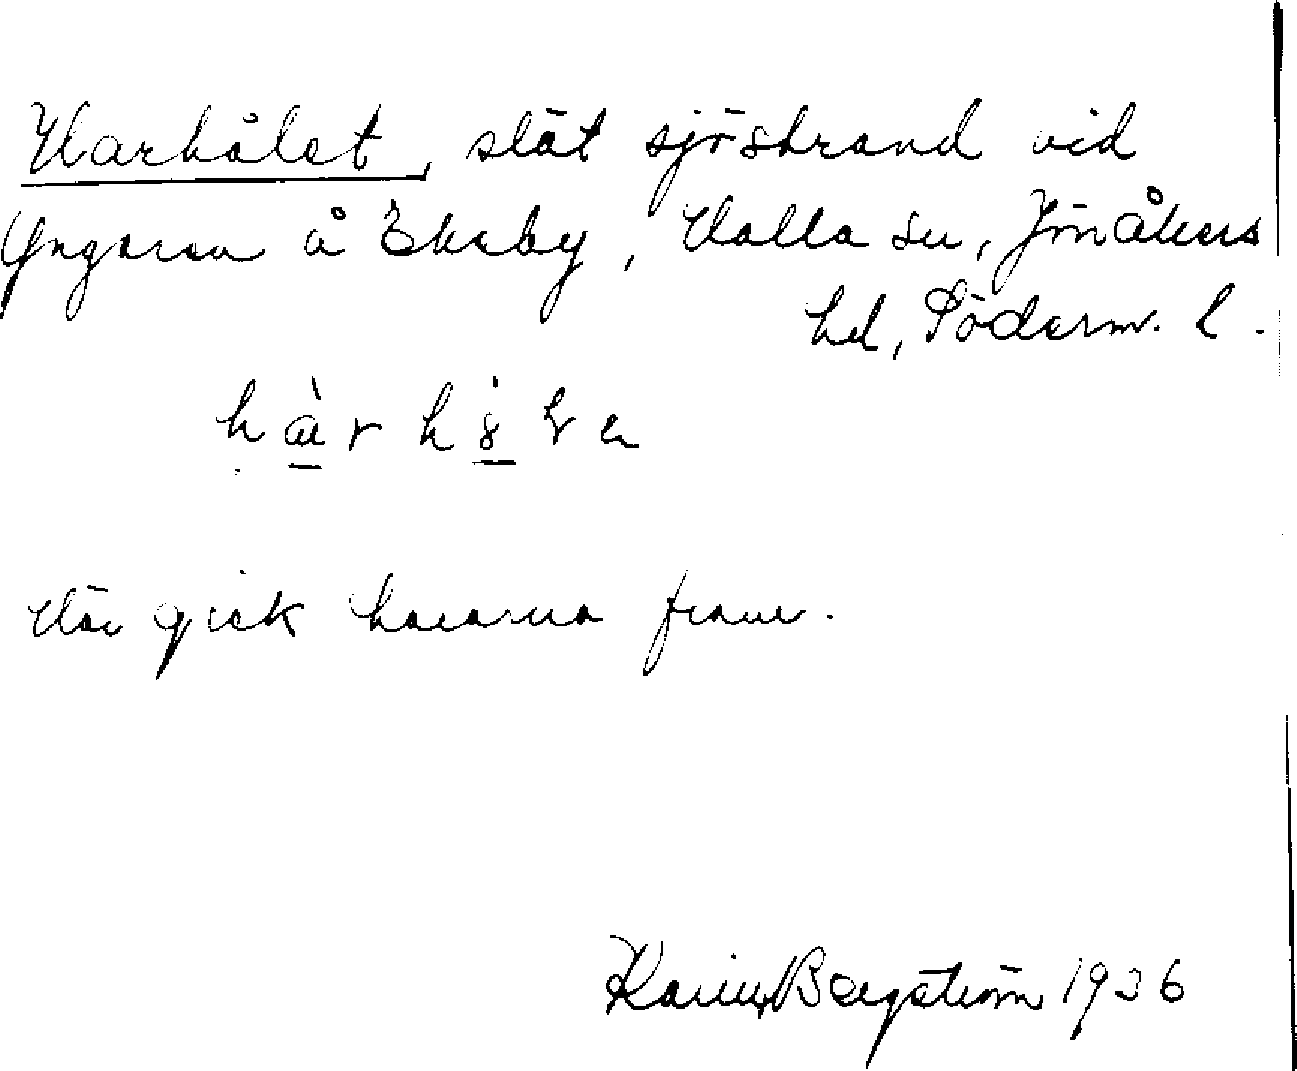 Harhålet, slät sjöstrand vid
Yngaren å Ekeby, Halla sn, Jönåkers
hd, Söderm. l.
Där gick hararna fram.
Karin Bergström 1936